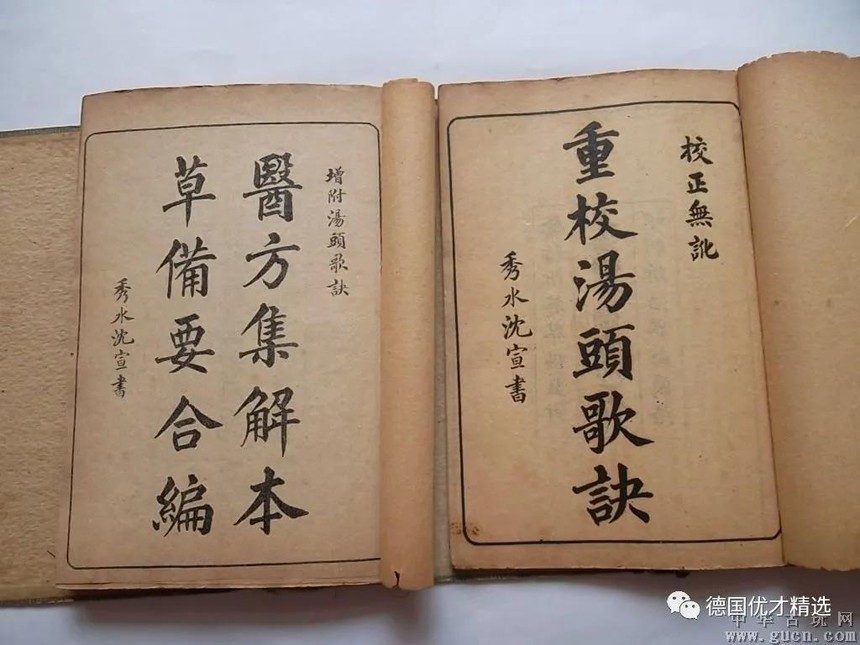 增附湯頭歌訣
醫方集解本
草備要合編
秀水沈宣書
校正無訛
重校湯頭歌訣
秀水沈宣書
德国优才精选
中华古玩网
www.gucn.com